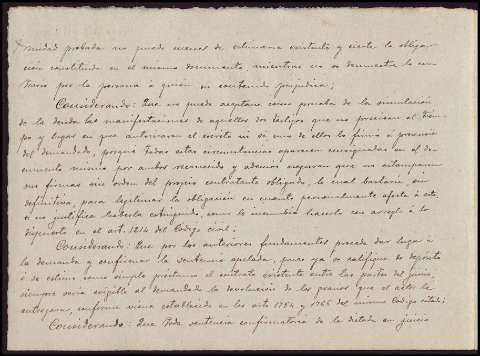 probada no puede menos de estimarse existente y cierta la obliga-
ción constituida en el mismo documento, mientras no se demuestre lo con-
trario por la persona á quien su contenido perjudica;
Considerando: Que no puede aceptarse como prueba de la simulación
de la deuda las manifestaciones de aquellos dos testigos que no precisan el tiem-
po y lugar en que autorizaron el escrito ni si uno de ellos lo firmó á presencia
del demandado, porque todas estas circunstancias aparecen consignadas en el do-
cumento mismo por ambos reconocido y además aseguran que no estamparon
sus firmas sin orden del propio contratante obligado, lo cual bastaría, en
definitiva, para legitimar la obligación en cuanto personalmente afecta á este,
si no justifica haberla extinguido, como le incumbía hacerlo con arreglo á lo
dispuesto en el art. 1214 del Código civil;
Considerando: Que por los anteriores fundamentos procede dar lugar á
la demanda y confirmar la sentencia apelada, pues ya se califique de depósito
ó se estime como simple préstamo el contrato existente entre las partes del juicio,
siempre sería exigible al demandado la devolución de los granos que el actor le
entregara, conforme viene establecido en los art. 1754 y 1766 del mismo Código citado;
Considerando: Que toda sentencia confirmatoria de la dictada en juicio